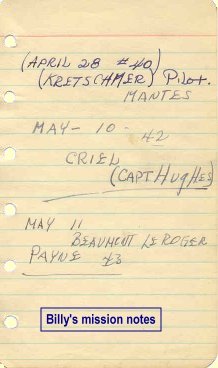 (APRIL 28 #40)
(KRETSCHMER) Pilot.
MANTES
MAY - 10 -
42
CRIEL
(CAPT HugHES)
MAY 11
BEAUMONT LE ROGER
PAYNE 43
Billy's mission notes